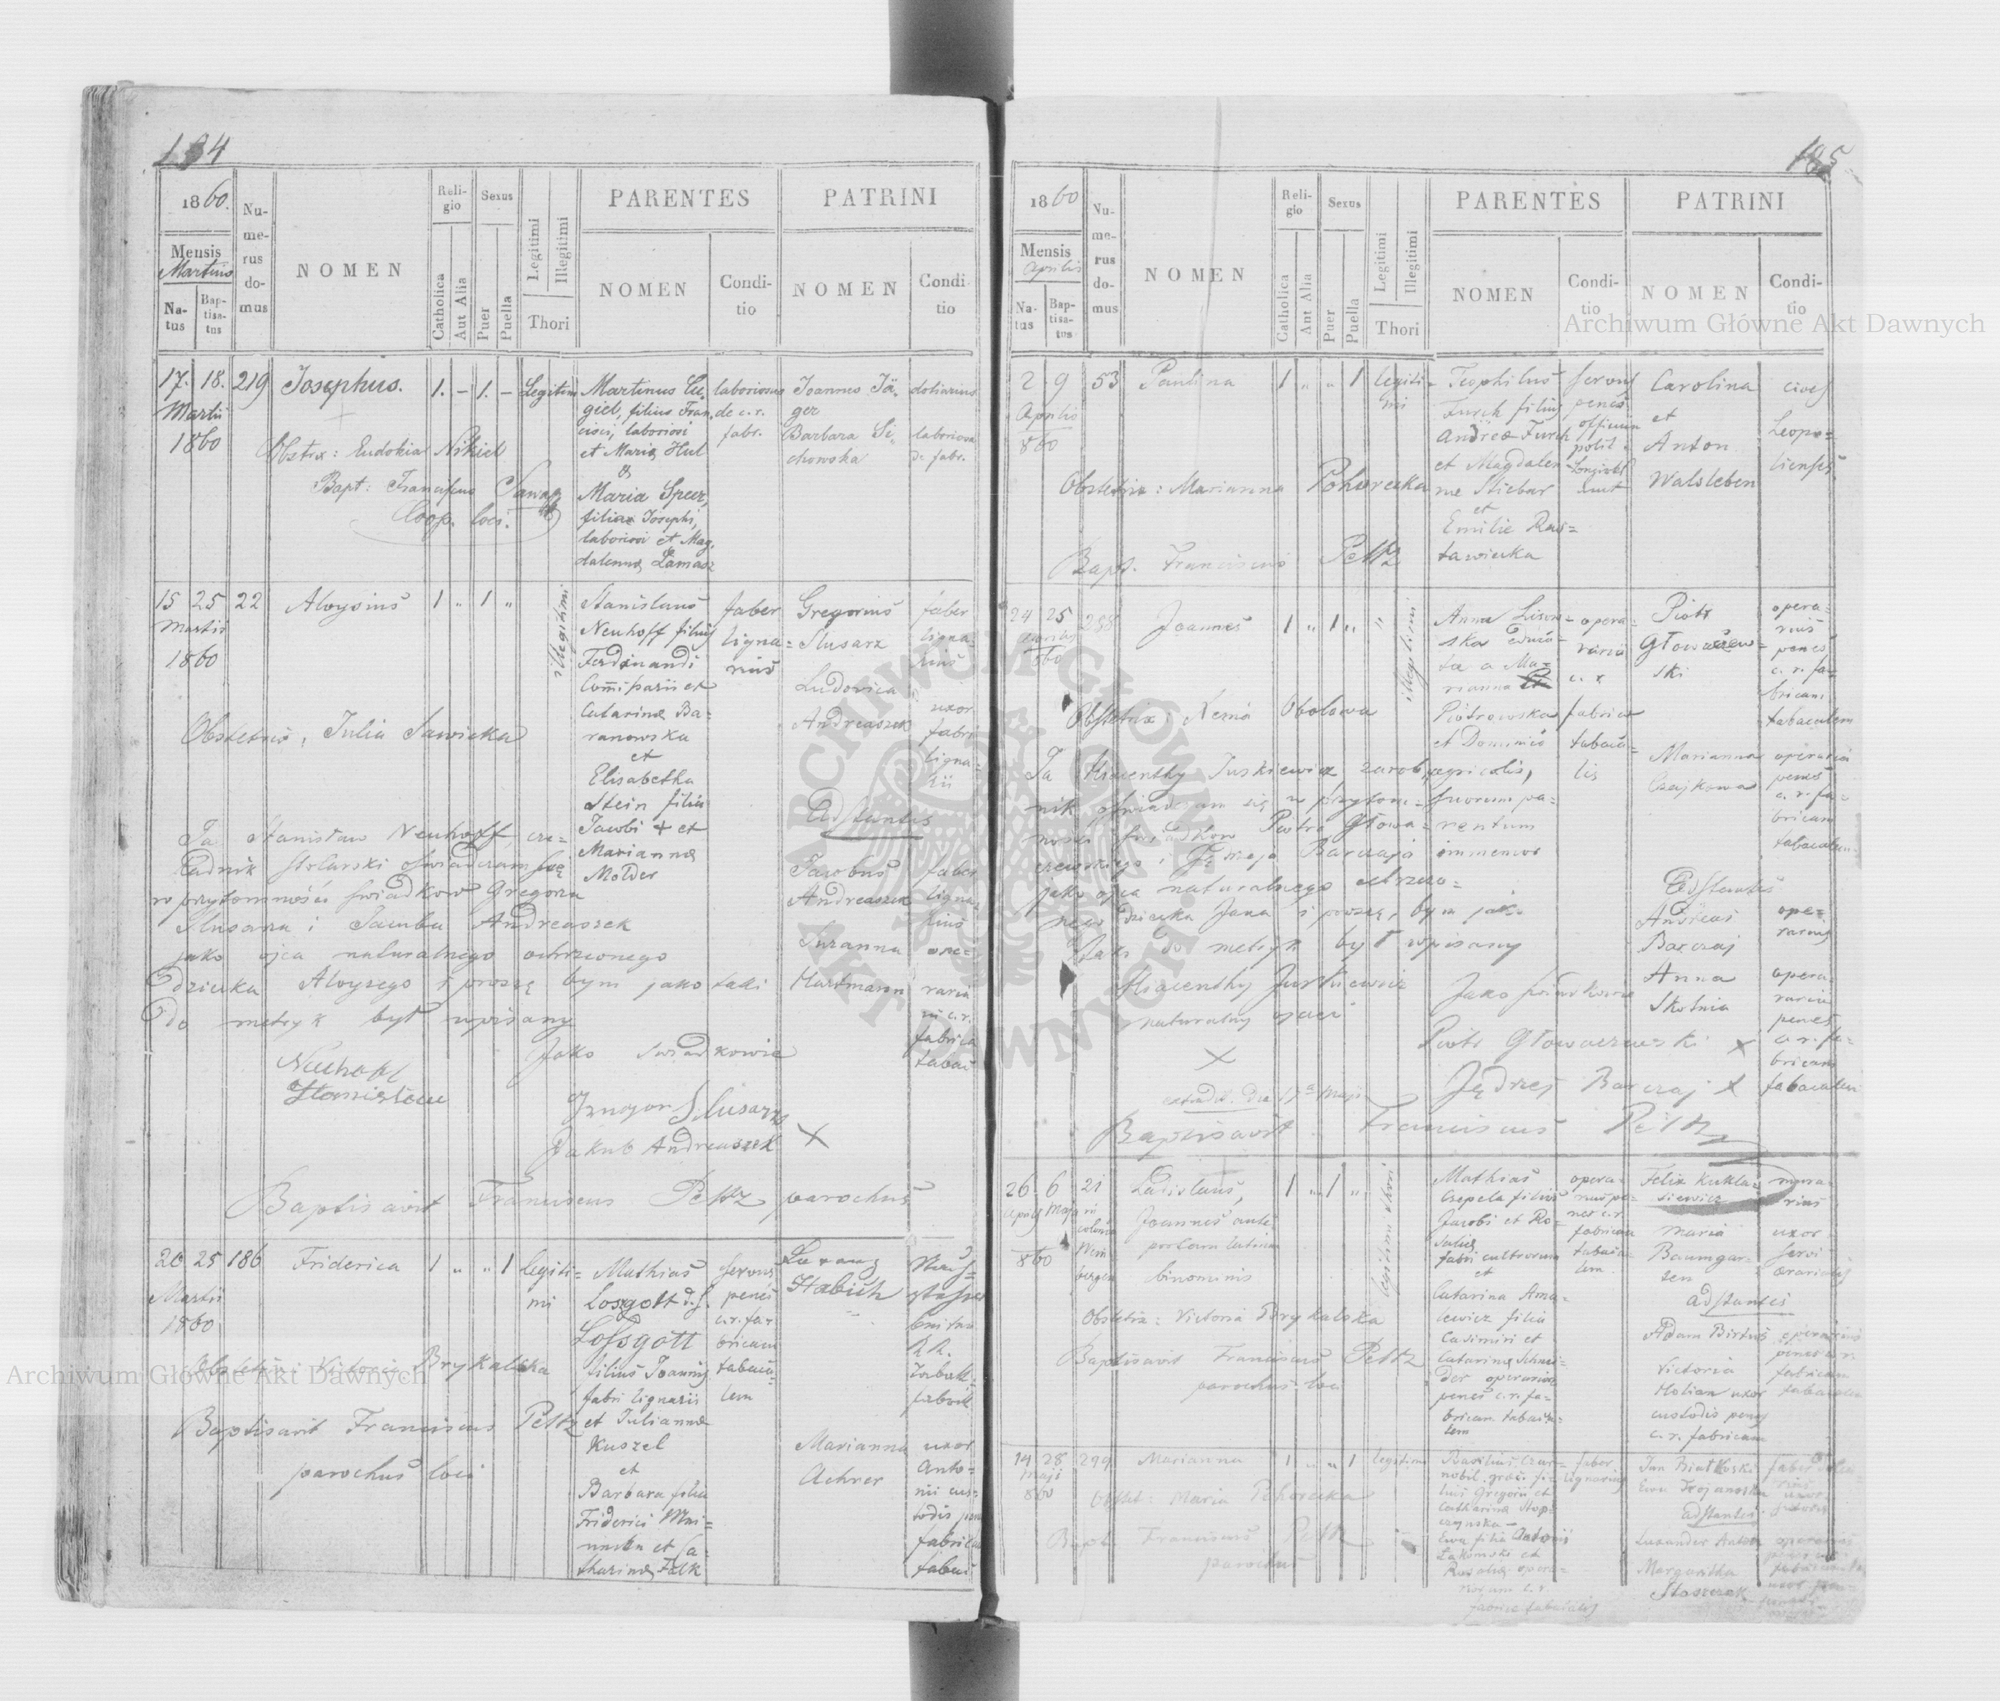 134
1860.
Mensis
Martius
Natus
Baptisatus
Numerus domus
NOMEN
Religio
Catholica
Aut Alia
Sexus
Puer
Puella
Legitimi
Illegitimi
Thori
PARENTES
NOMEN
Conditio
PATRINI
NOMEN
Conditio
17. 18. 219 Josephus. 1. - 1. - Legitimi
Martii
1860
Obstrx: Eudokia Nikiel
Bapt: Franciscus
Coop. loci.
Martinus
giel, filius Fran
cisci, laboriosi
et Maria Hul
&
Maria Speer,
filia Josephi,
laboriosi et Mag
dalena Lamasz
laboriosus
de c. r.
fabr.
Joannes Jä
ger
Barbara Si
chowska
laboriosa
de fabr.
15 25 22 Aloysius 1 „ 1 „ illegitimi
Martii
1860
Obstetrix, Julia Sawicka
Stanislaus
Neuhoff filius
Ferdinandi
et
Catarina Ba=
ranowska
et
Elisabetha
Stein filia
Jacobi + et
Marianna
Molder
faber
ligna=
rius
Gregorius
Slusarz
Ludovica
Andreaszek
Adstantes
Jacobus
Andreaszek
Suzanna
Hartmann
faber
ligna
rius
uxor
fabri
ligna=
rii
faber
ligna
rius
ope=
raria
c. r.
fabrica
tabac
Ja Stanisław Neuhoff, cze=
ladnik stolarski oświadczam się
w przytomności świadków Gregorza
Slusarza i Jacuba Andreaszek
jako ojca naturalnego ochrzconego
dziecka Aloyzego i proszę bym jako taki
do metryk był wpisany
Neuhoff
Stanisław
Jako świadkowie
Grzegorz Slusarz
Jakub Andreaszek X
Baptisavit Franciscus Peltz parochus
20 25 186 Friderica 1 „ „ 1 legiti=
mi
Martii
1860
Obstetrix Victoria Brykalska
Baptisavit Franciscus Peltz
parochus loci
Mathias
Losgott
Lossgott
filius Joannis
fabri lignarii
et Julianna
Kuszel
et
Barbara filia
Friderici
et Ca=
tharina Falk
servus
penes
c. r. fa=
bricam
tabaca=
lem
Lorenz
Stabich
Marianna
Achrer
uxor
Anto=
nii cus=
todis
fabrica
tabac
185
1860
Mensis
Aprilis
Natus
Baptisatus
Numerus domus
NOMEN
Religio
Catholica
Aut Alia
Sexus
Puer
Puella
Legitimi
Illegitimi
Thori
PARENTES
NOMEN
Conditio
PATRINI
NOMEN
Conditio
2 9 53 Paulina 1 „ „ 1 legiti=
mi
Aprilis
860
Obstetrix: Marianna Pohorecka
Bapt. Franciscus Peltz
Teophilus
Furch filius
Andreae Furch
et Magdale
nae Stiebar
et
Emilie Ras=
tawiecka
servus
penes
Carolina
et
Anton
Walsleben
cives
Leopo=
lienses
24 25 288 Joannes 1 „ 1 „ illegitimi
Aprilis
860
Obstetrix: Obolowa
Anna
ska
ta a Ma=
rianna
Piotrowska
et Dominic
opera=
raria
c. r.
fabrica
tabaca=
lis
agricolis,
suorum pa=
rentum
immemor
Piotr
Głowaczew=
ski
Marianna
Czajkowa
Adstantes
Andreas
Barczaj
Anna
Skotnia
opera=
rius
penes
c. r. fa=
bricam
tabacalem
operaria
penes
c. r. fa=
bricam
tabacalem
ope=
rarius
opera=
raria
penes
c. r. fa=
bricam
tabacalem
Ja Hiacenthy Juskiewicz, zarob
nik, oświadczam się w przytom=
ności świadków Piotra Głowa=
czewskiego i Jędrzeja Barczaja
jako ojca naturalnego ochrzczo=
nego dziecka Jana i proszę, bym jako
taki do metryk był wpisany
Hiacenthy Juskiewicz
naturalny ojciec
X
Jako świadkowie
Piotr Głowaczewski X
Jędrzej Barczaj X
Baptisavit Franciscus Peltz
26 6 21 Ladislaus, 1 „ 1 „ legitimi thori
Aprilis Maji
860
Joannes ante
portam latinam
binominis
Obstetrix: Victoria Brykalska
Baptisavit Franciscus Peltz
parochus loci
Mathias
Czepela filius
Jacobi et Ro=
salia
fabri cultrorum
et
Catarina Ama=
lewicz filia
Casimiri et
Catarina Schnei=
der operarius
penes c. r. fa=
bricam tabaca=
lem
opera=
rius pe=
nes c. r.
fabricam
tabaca
lem
Felix Kukla=
siewicz
Maria
Baumgar=
ten
Adstantes
Adam Birtus
Victoria
Molian uxor
custodis penes
c. r. fabricam
mura=
rius
uxor
servi
aerarialis
operarius
penes c. r.
fabricam
tabacalem
14 28 299 Marianna 1 „ „ 1 legitimi
Maji
860
Obstet: Maria Pohorecka
Bapt. Franciscus Peltz
parochus
Basilius Czar=
nobil
Gregorii et
Catharina
Ewa filia Antonii
et
Rosalia opera=
faber
lignarius
Jan Białkoski
Ewa Trojanoska
Adstantes
Anton
Margaritha
Staszczak
Archiwum Główne Akt Dawnych
Archiwum Główne Akt Dawnych
ARCHIWUM GŁÓWNE AKT DAWNYCH